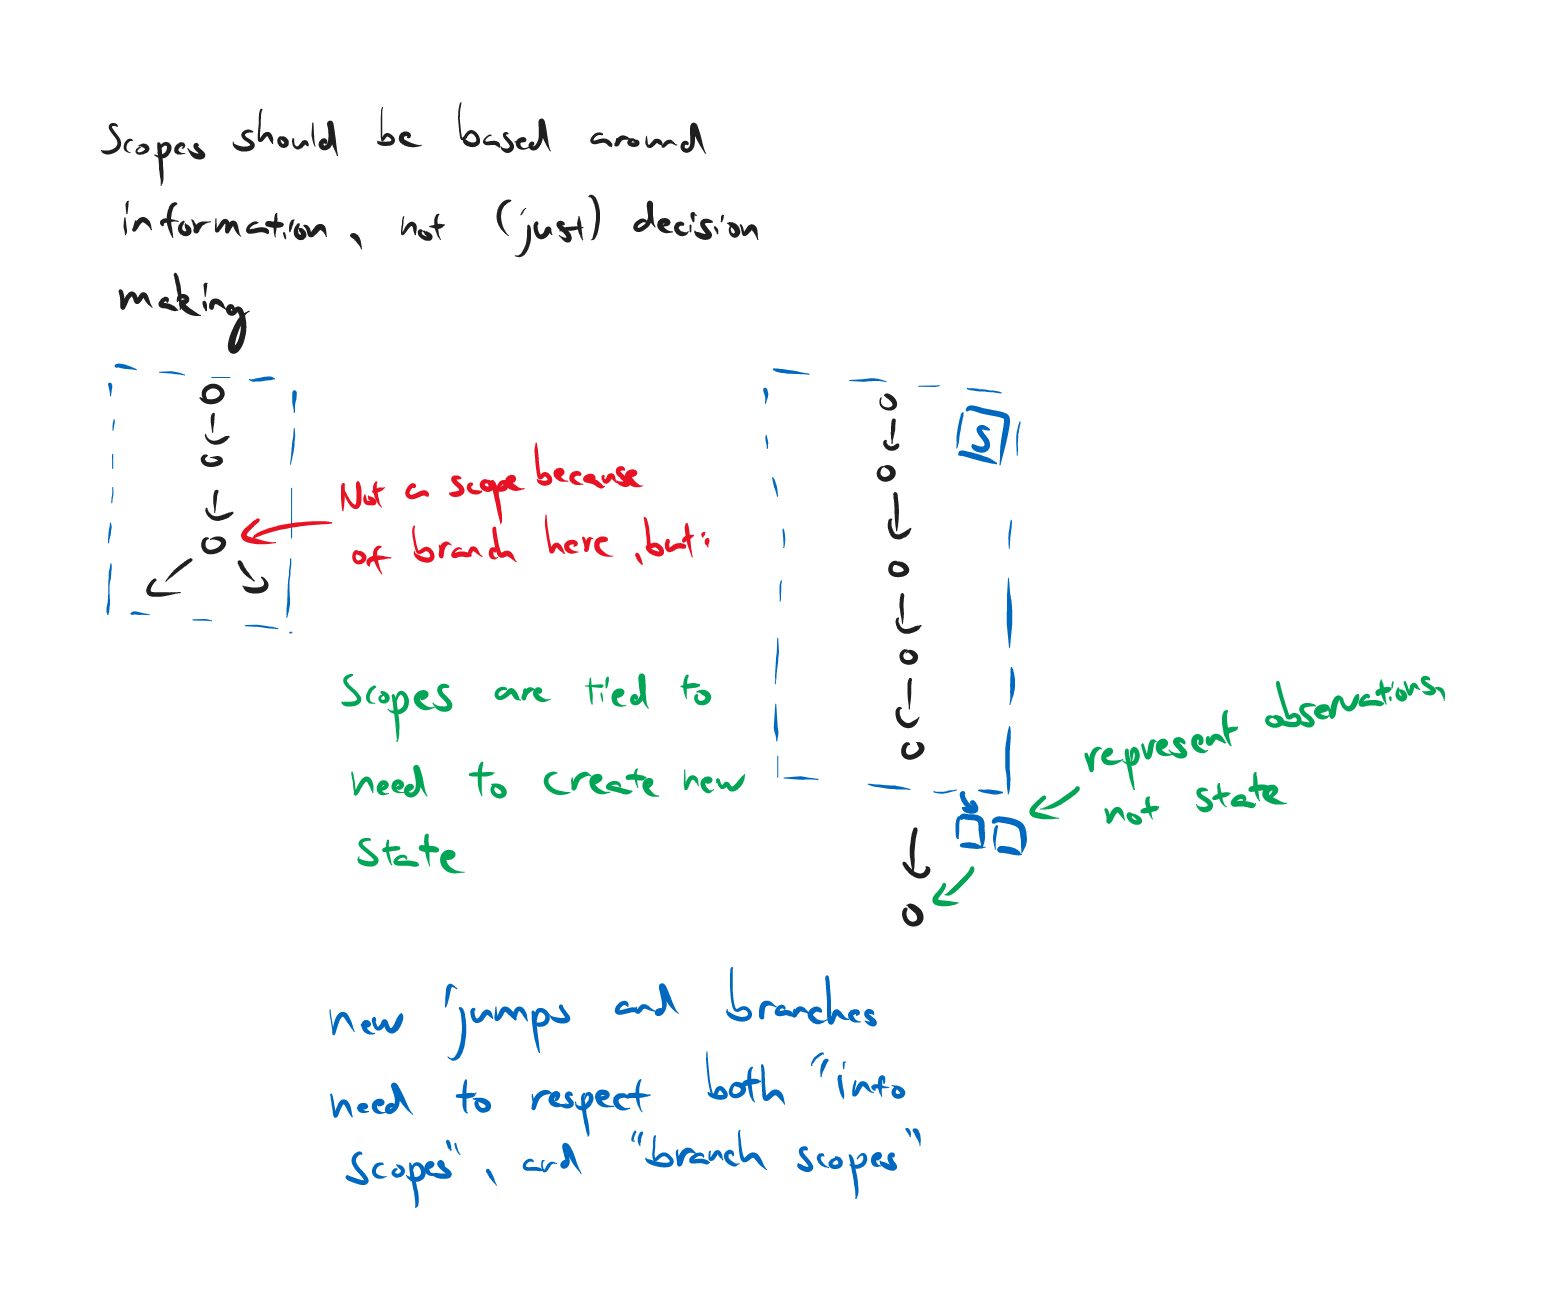 Scopes should be based around
information, not (just) decision
making
S
Not a scope because
of branch here, but:
Scopes are tied to
need to create new
state
represent observations,
not state
new jumps and branches
need to respect both "into
scopes", and "branch scopes"